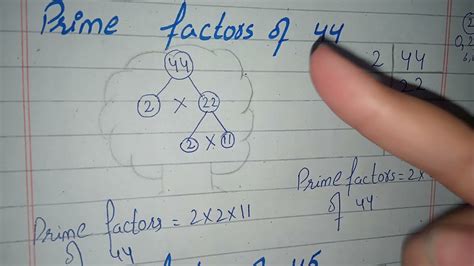 Prime factors of 44
44
2 × 22
2 × 11
Prime factors = 2×2×11
of 44
2 | 44
22
Prime factors = 2×
of 44
factors of